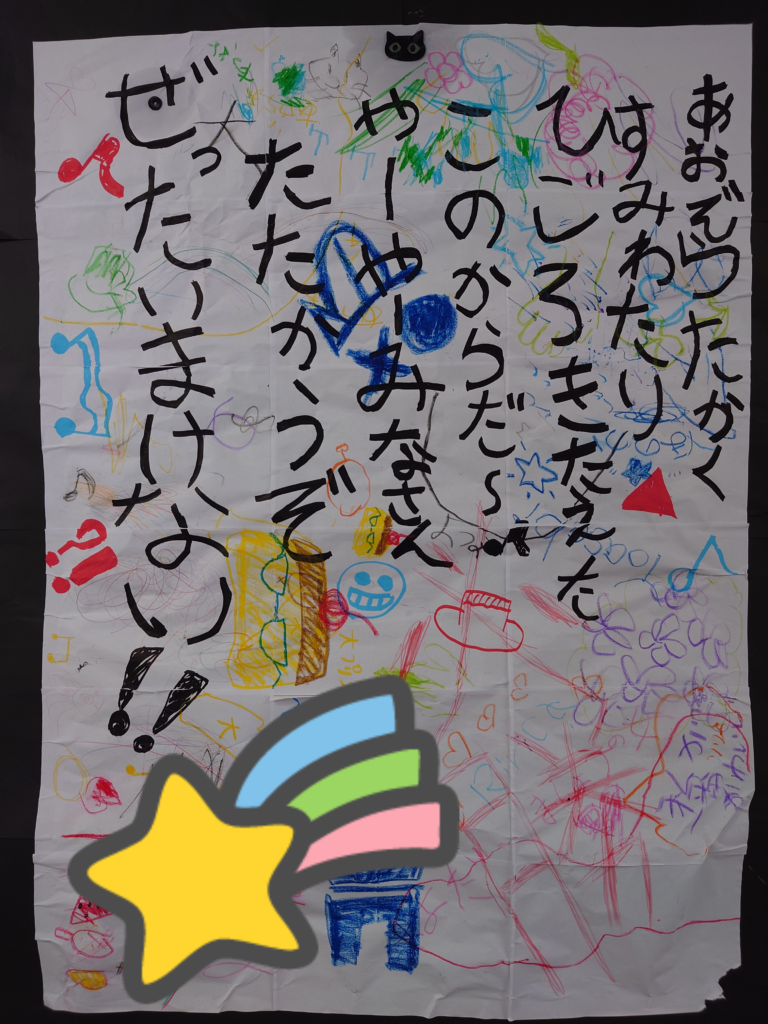 あおぞらたかく
すみわたり
ひごろきたえた
このからだ〜
やーやーみなさん
たたかうぞ
ぜったいまけない!!